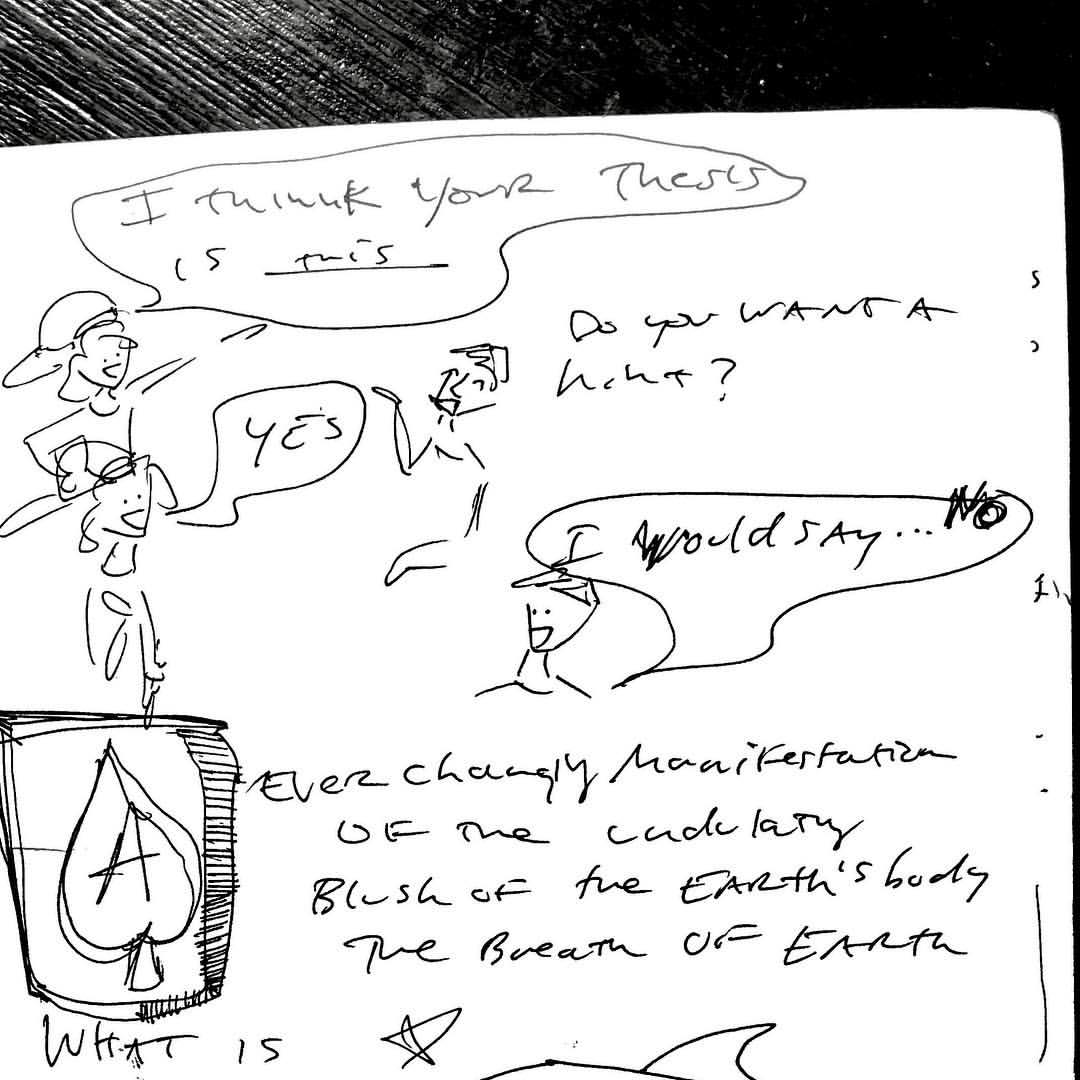 I THINK YOUR THESIS
IS this
DO you WANT A
hint?
YES
I Would SAY... NO
A
EVER changing Manifestation
OF the undulating
Blush OF the EARTH'S body
The Breath OF EARTH
WHAT IS